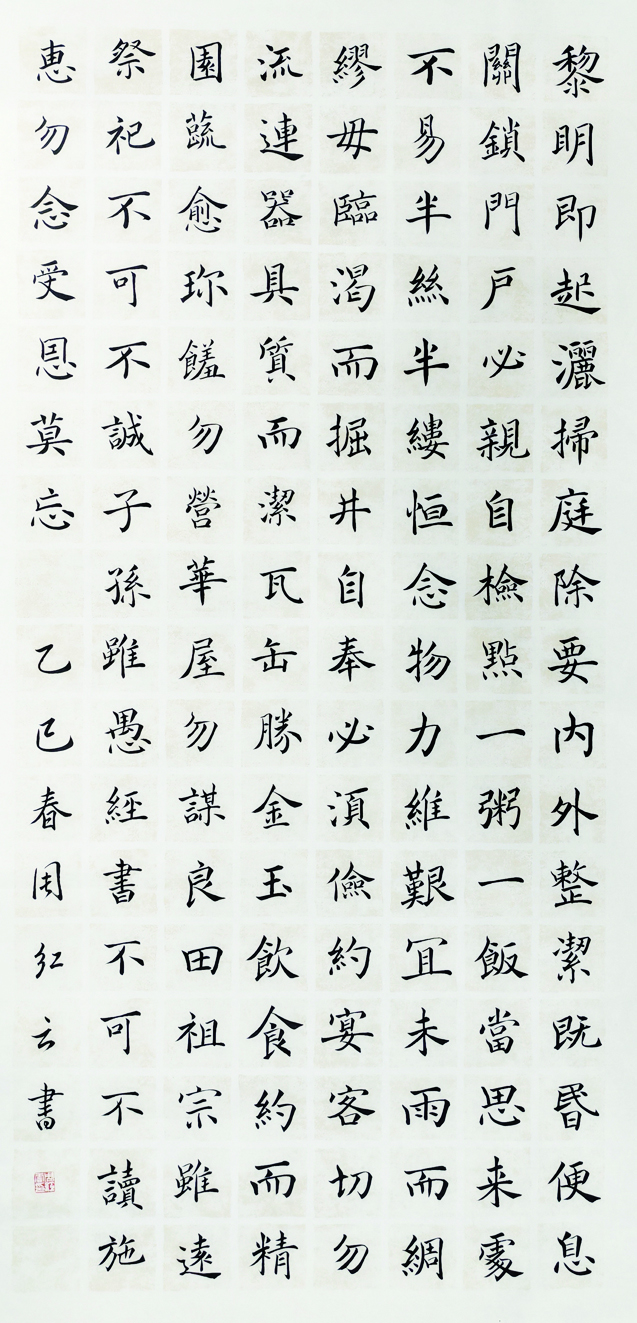 黎明即起灑掃庭除要内外整潔既昬便息
關鎖門戶必親自檢點一粥一飯當思来處
不易半絲半縷恒念物力維艱冝未雨而綢
繆毋臨渴而掘井自奉必湏儉約宴客切勿
流連器具質而潔瓦缶勝金玉飲食約而精
園蔬愈珎饈勿營華屋勿謀良田祖宗雖遠
祭祀不可不誠子孫雖愚經書不可不讀施
惠勿念受恩莫忘 乙巳春周紅云書